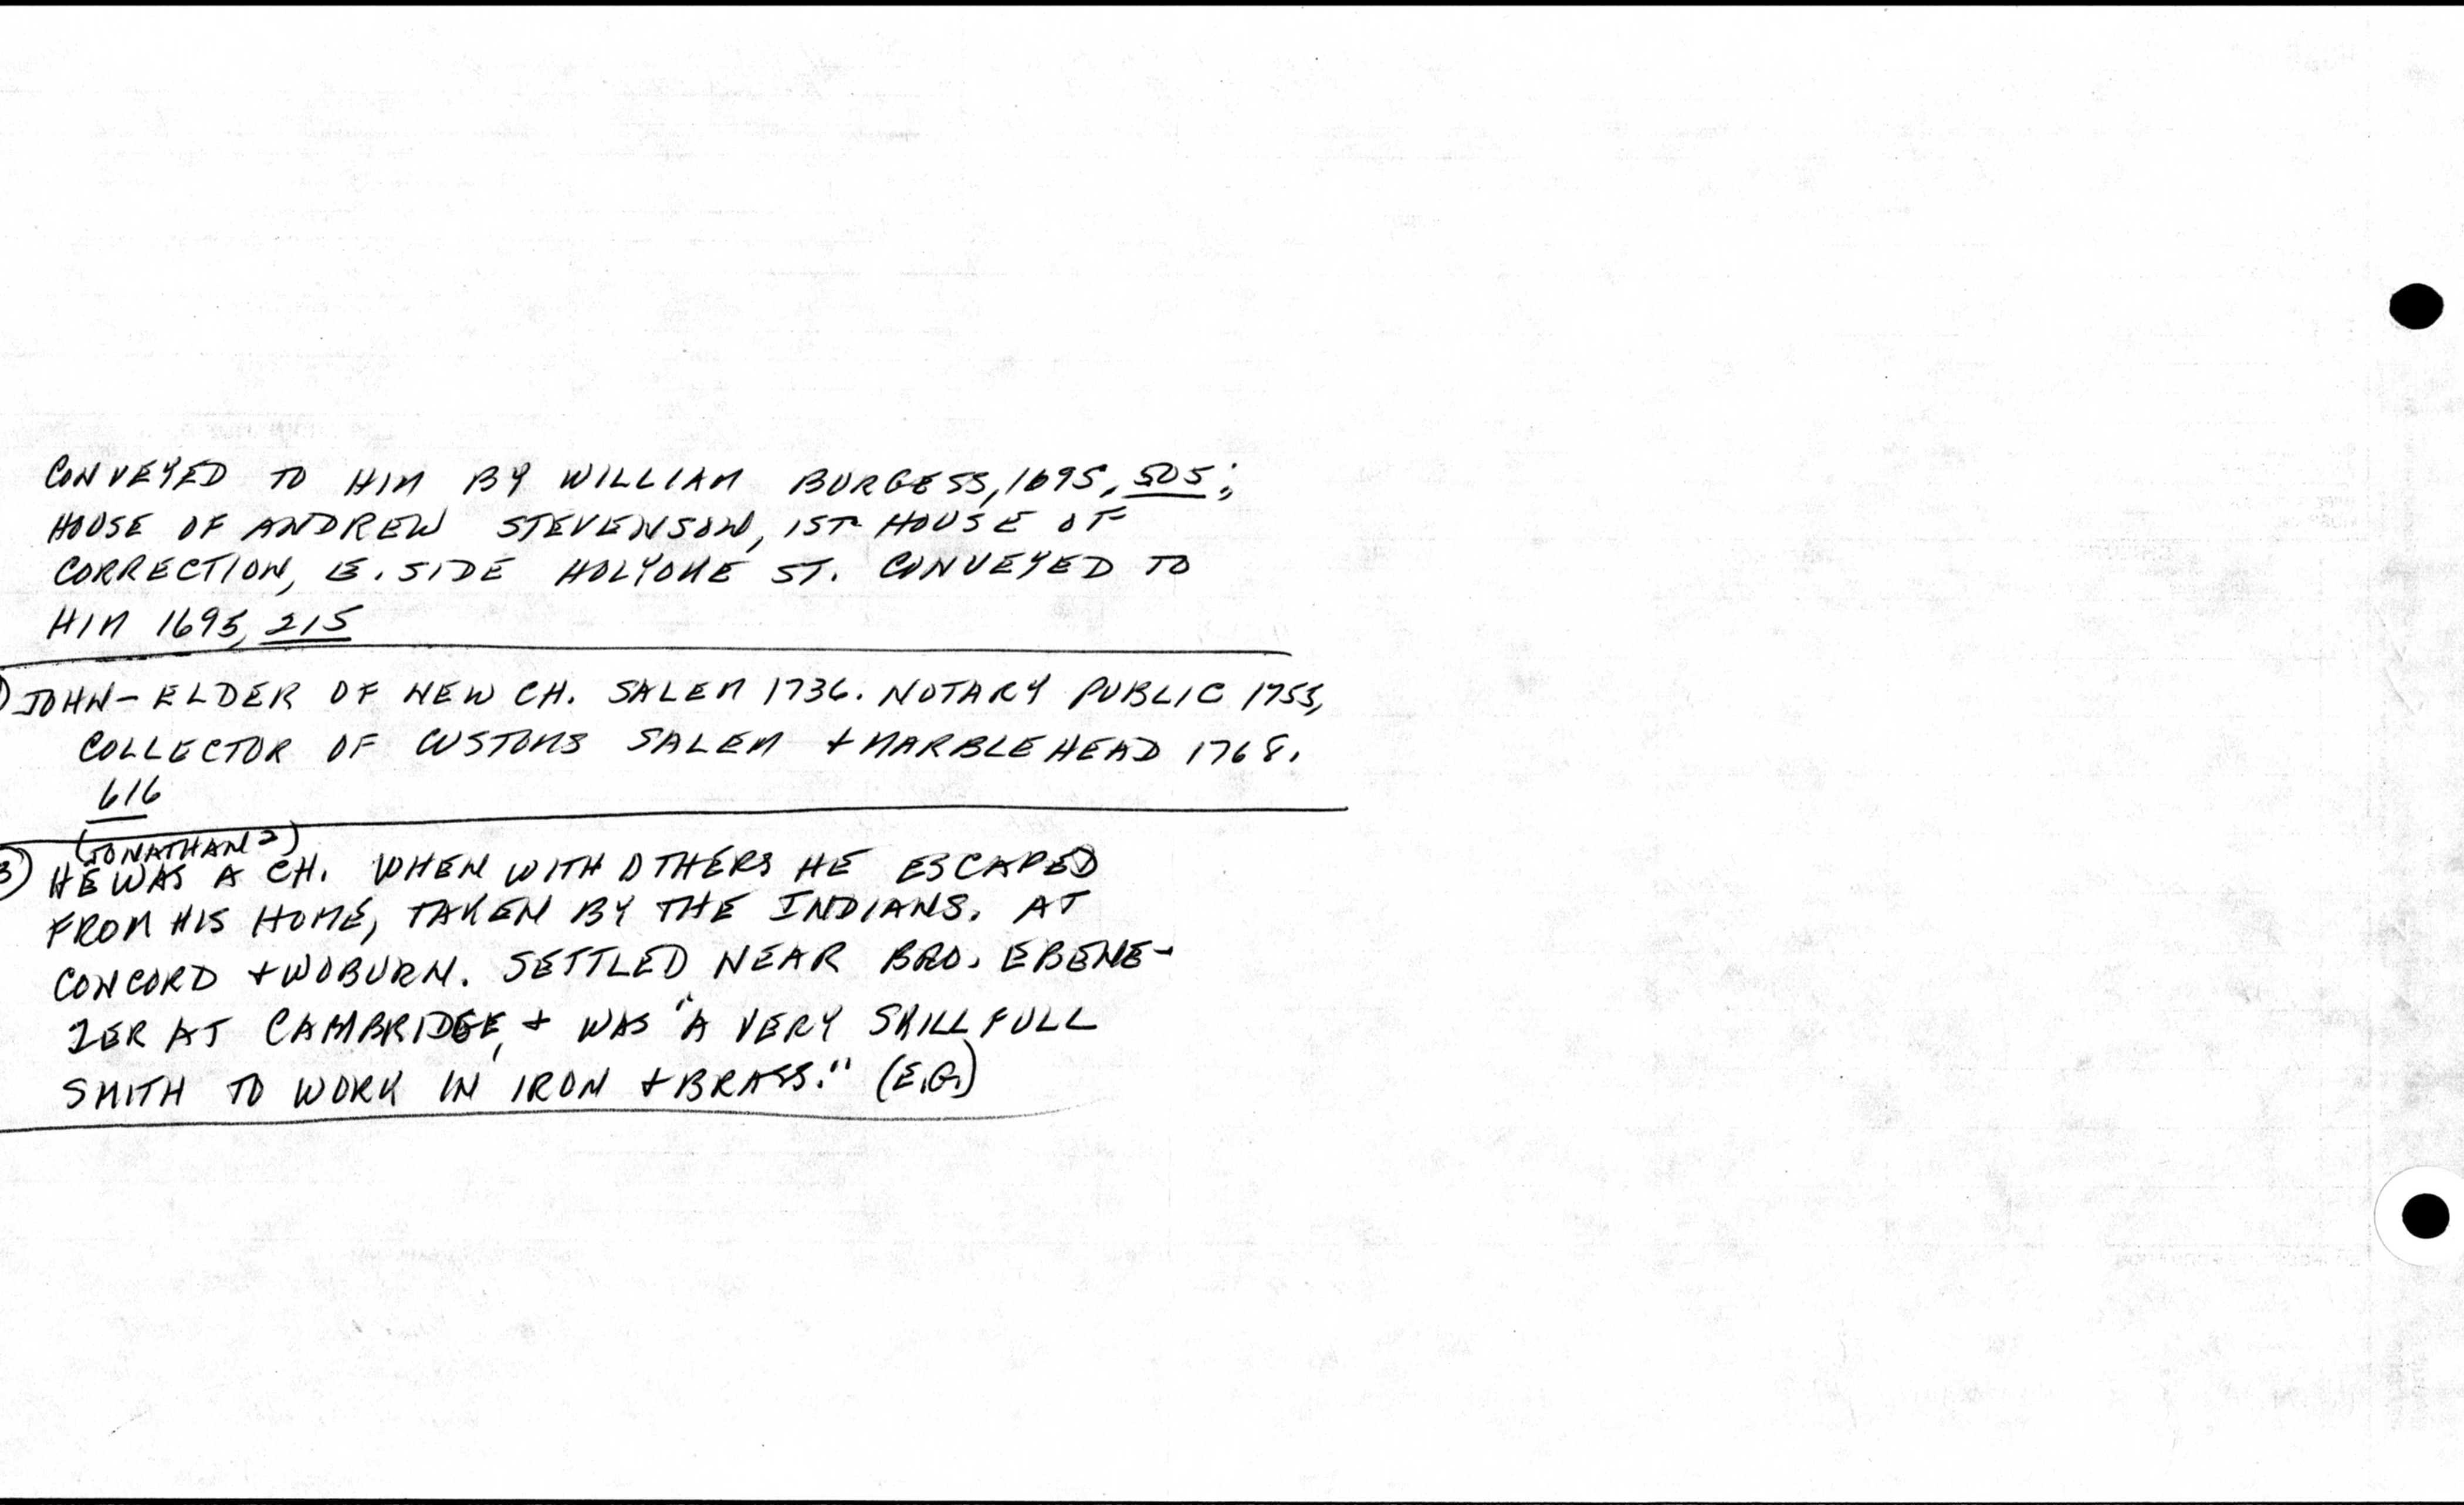 CONVEYED TO HIM BY WILLIAM BURGESS, 1695, 505;
HOUSE OF ANDREW STEVENSON, 1ST HOUSE OF
CORRECTION, E. SIDE HOLYOKE ST. CONVEYED TO
HIM 1695, 215
JOHN - ELDER OF NEW CH. SALEM 1736. NOTARY PUBLIC 1755,
COLLECTOR OF CUSTOMS SALEM + MARBLEHEAD 1768.
616
(JONATHAN 2)
3) HE WAS A CH. WHEN WITH OTHERS HE ESCAPED
FROM HIS HOME, TAKEN BY THE INDIANS. AT
CONCORD + WOBURN. SETTLED NEAR BRO. EBENE-
ZER AT CAMBRIDGE, + WAS "A VERY SKILLFULL
SMITH TO WORK IN IRON + BRASS." (E.G.)